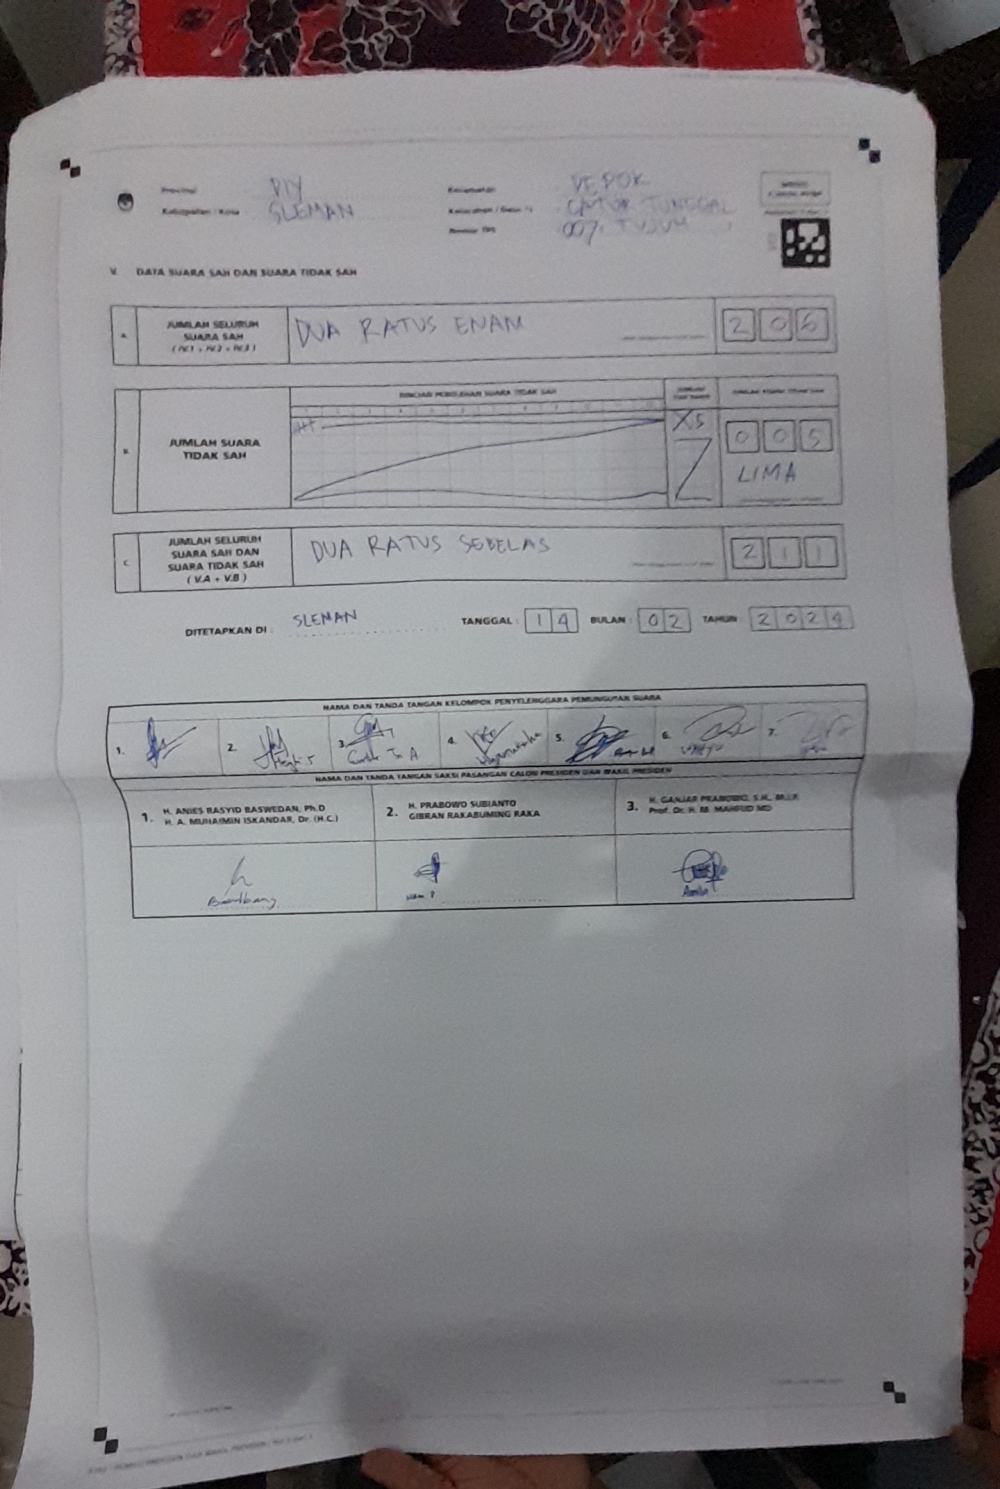 Provinsi DIY
Kabupaten / Kota SLEMAN
Kecamatan DEPOK
Kelurahan / Desa *) CATUR TUNGGAL
Nomor TPS 007, TUJUH
V. DATA SUARA SAH DAN SUARA TIDAK SAH
A. JUMLAH SELURUH SUARA SAH (IV.1 + IV.2 + IV.3) DUA RATUS ENAM 206
RINCIAN PEROLEHAN SUARA TIDAK SAH
B. JUMLAH SUARA TIDAK SAH 5 005
LIMA
C. JUMLAH SELURUH SUARA SAH DAN SUARA TIDAK SAH (V.A + V.B) DUA RATUS SEBELAS 211
DITETAPKAN DI : SLEMAN TANGGAL : 14 BULAN : 02 TAHUN 2024
NAMA DAN TANDA TANGAN KELOMPOK PENYELENGGARA PEMUNGUTAN SUARA
1. 2. 3. 4. 5. 6. 7.
NAMA DAN TANDA TANGAN SAKSI PASANGAN CALON PRESIDEN DAN WAKIL PRESIDEN
1. H. ANIES RASYID BASWEDAN, Ph.D
H. A. MUHAIMIN ISKANDAR, Dr. (H.C.)
2. H. PRABOWO SUBIANTO
GIBRAN RAKABUMING RAKA
3. H. GANJAR PRANOWO, S.H., M.I.P.
Prof. Dr. H. M. MAHFUD MD
Bambang